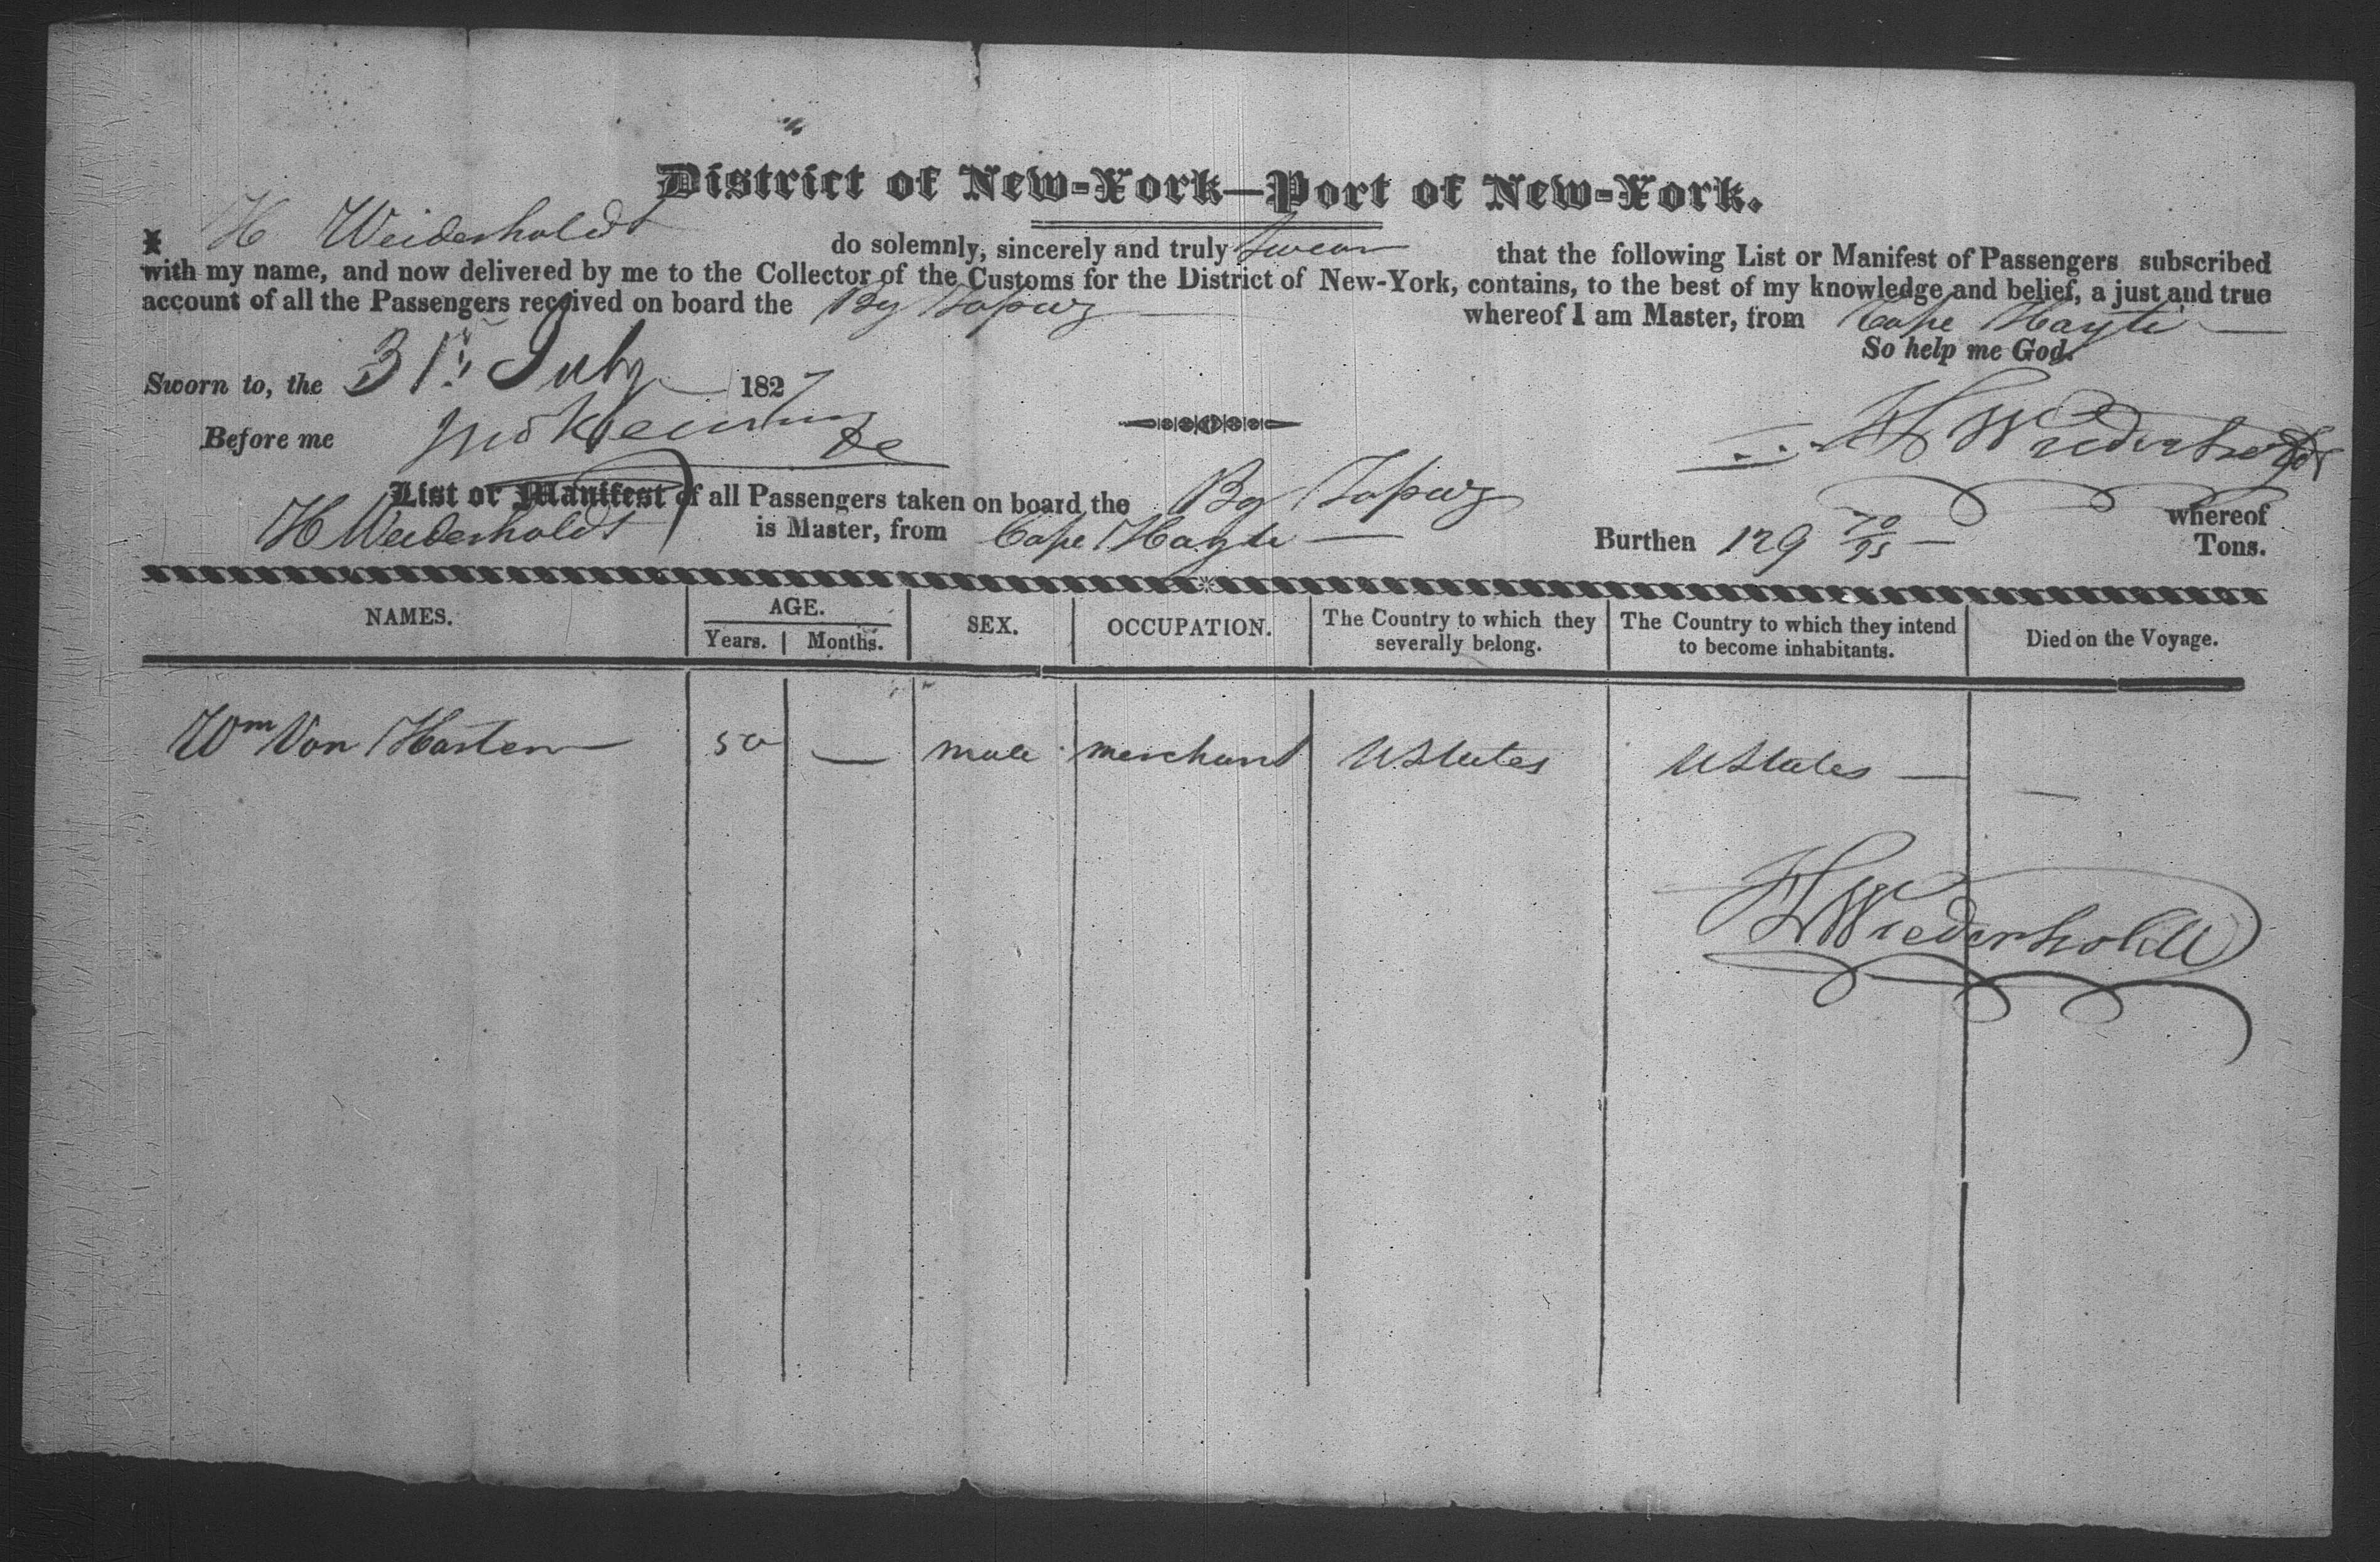 District of New-York—Port of New-York.
I H Weiderholdt do solemnly, sincerely and truly swear that the following List or Manifest of Passengers subscribed
with my name, and now delivered by me to the Collector of the Customs for the District of New-York, contains, to the best of my knowledge and belief, a just and true
account of all the Passengers received on board the Bg Topaz whereof I am Master, from Cape Hayti
So help me God.
Sworn to, the 31st July 1827
Before me
H Wiederholdt
List or Manifest of all Passengers taken on board the Bg Topaz whereof
H Weiderholdt is Master, from Cape Hayti Burthen 129 70/95 Tons.
NAMES. AGE. SEX. OCCUPATION. The Country to which they severally belong. The Country to which they intend to become inhabitants. Died on the Voyage.
Years. Months.
Wm Von Harten 50 — male merchant UStates UStates — —
H Wiederholdt